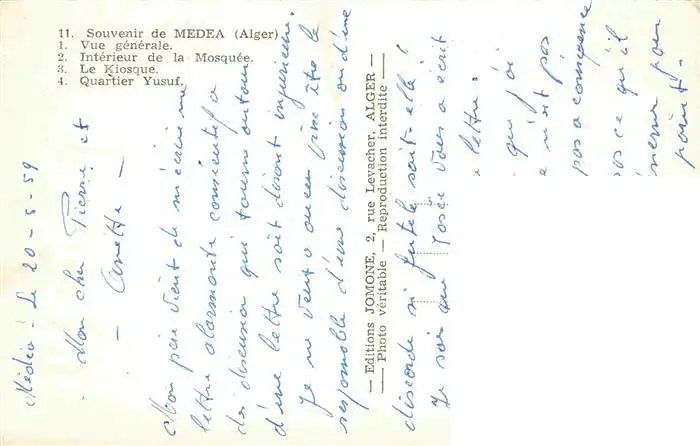 11. Souvenir de MEDEA (Alger)
1. Vue générale.
2. Intérieur de la Mosquée.
3. Le Kiosque.
4. Quartier Yusuf.
— Editions JOMONE, 2, rue Levacher, ALGER —
— Photo véritable — Reproduction interdite —
Médéa - Le 20-5-59
Mon cher Pierre et
- Anette -
Mon père vient de m'écrire une
lettre alarmante consécutif a
des discussion qui tourne autour
d'une lettre soit disant injurieuse.
Je ne veut o aucun prix être le
responsable d'une discussion ou d'une
discorde si futile soit-elle !
Je sais que Josée vous a écrit
lettre.
qui j'ai
e n'est pas
pas a conséquence
ce qu'il
pour
point.